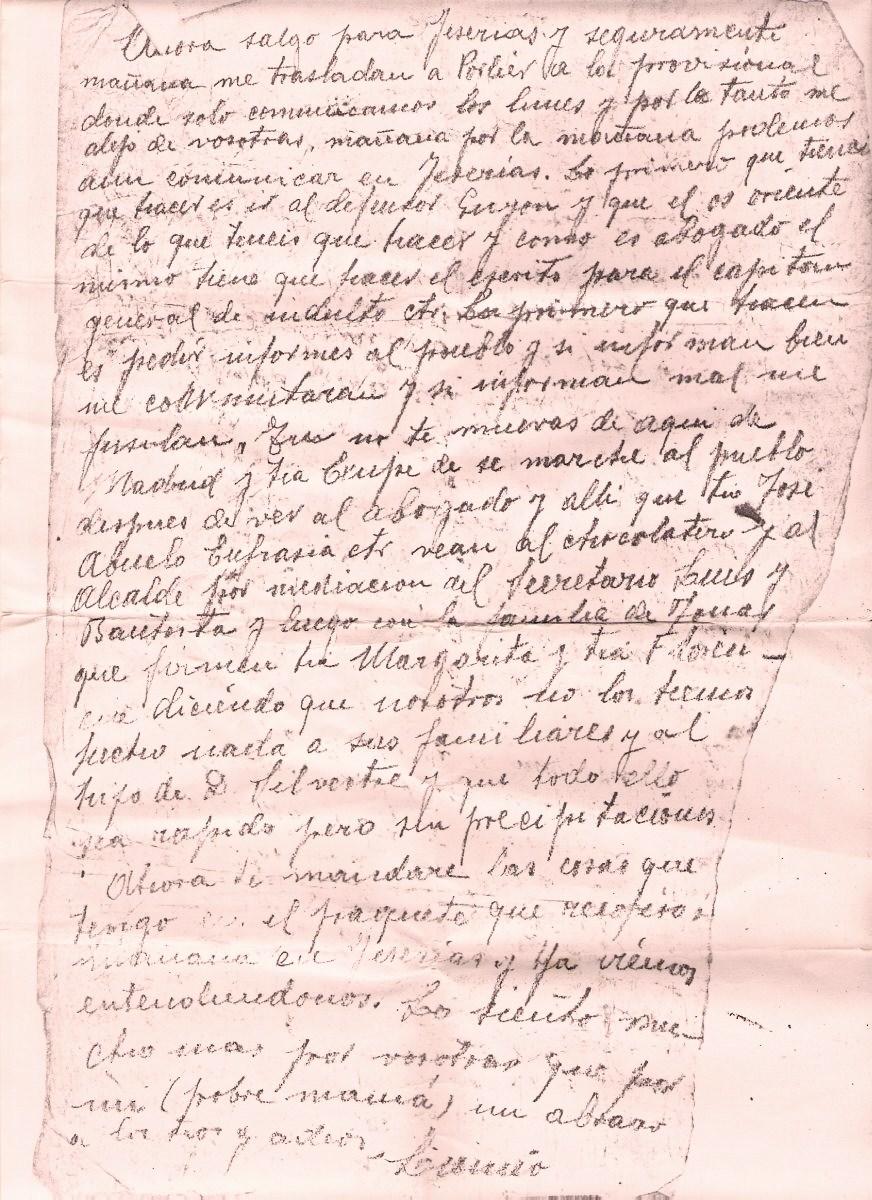 Ahora salgo para Yeserias y seguramente
mañana me trasladan a Porlier a la provisional
donde solo comunicamos los lunes y por lo tanto me
alejo de vosotras, mañana por la mañana podemos
aun comunicar en Yeserias. Lo primero que teneis
que hacer es ir al defensor y que el os oriente
de lo que teneis que hacer y como es abogado el
mismo tiene que hacer el escrito para el capitan
general de indulto etc. Lo primero que hacen
es pedir informes al pueblo y si informan bien
me conmutaran y si informan mal me
fusilan, Tu no te muevas de aqui de
Madrid y tia se marche al pueblo
despues de ver al abogado y alli que tio José
Abuelo Eufrasia etc vean al chocolatero y al
Alcalde por mediacion del Secretario y
Bautista y luego con la familia de
que firmen tia Margarita y tia Floren-
cia diciendo que nosotros no los hemos
hecho nada a sus familiares y al
hijo de D. Silvestre y que todo ello
sea rapido pero sin precipitaciones
Ahora te mandare las cosas que
tengo en el paquete que
mañana en Yeserias y ya iremos
entendiendonos. Lo siento mu-
cho mas por vosotras que por
mi (pobre mamá) un abrazo
a los tres y adios